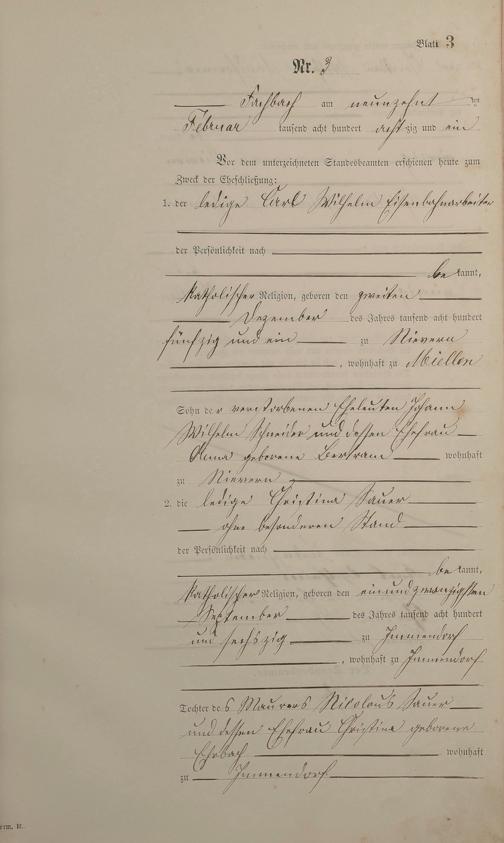 Blatt 3
Nr. 3
Fachbach am neunzehnt en
Februar tausend acht hundert acht zig und ein
Vor dem unterzeichneten Standesbeamten erschienen heute zum
Zweck der Eheschließung:
1. der ledige Carl Wilhelm Eisenbahnarbeiter
der Persönlichkeit nach
be kannt,
katholischer Religion, geboren den zweiten
Dezember des Jahres tausend acht hundert
fünfzig und ein zu Nievern
, wohnhaft zu Miellen
Sohn de r verstorbenen Eheleuten Johann
Wilhelm Schneider und dessen Ehefrau
Anna geborene Bertram wohnhaft
zu Nievern
2. die ledige Christina Sauer
ohne besonderen Stand
der Persönlichkeit nach
be kannt,
katholischer Religion, geboren den einundzwanzigsten
September des Jahres tausend acht hundert
und sechszig zu Immendorf
, wohnhaft zu Immendorf
Tochter de s Maurers Nikolaus Sauer
und dessen Ehefrau Christina geborene
Ehrbach wohnhaft
zu Immendorf